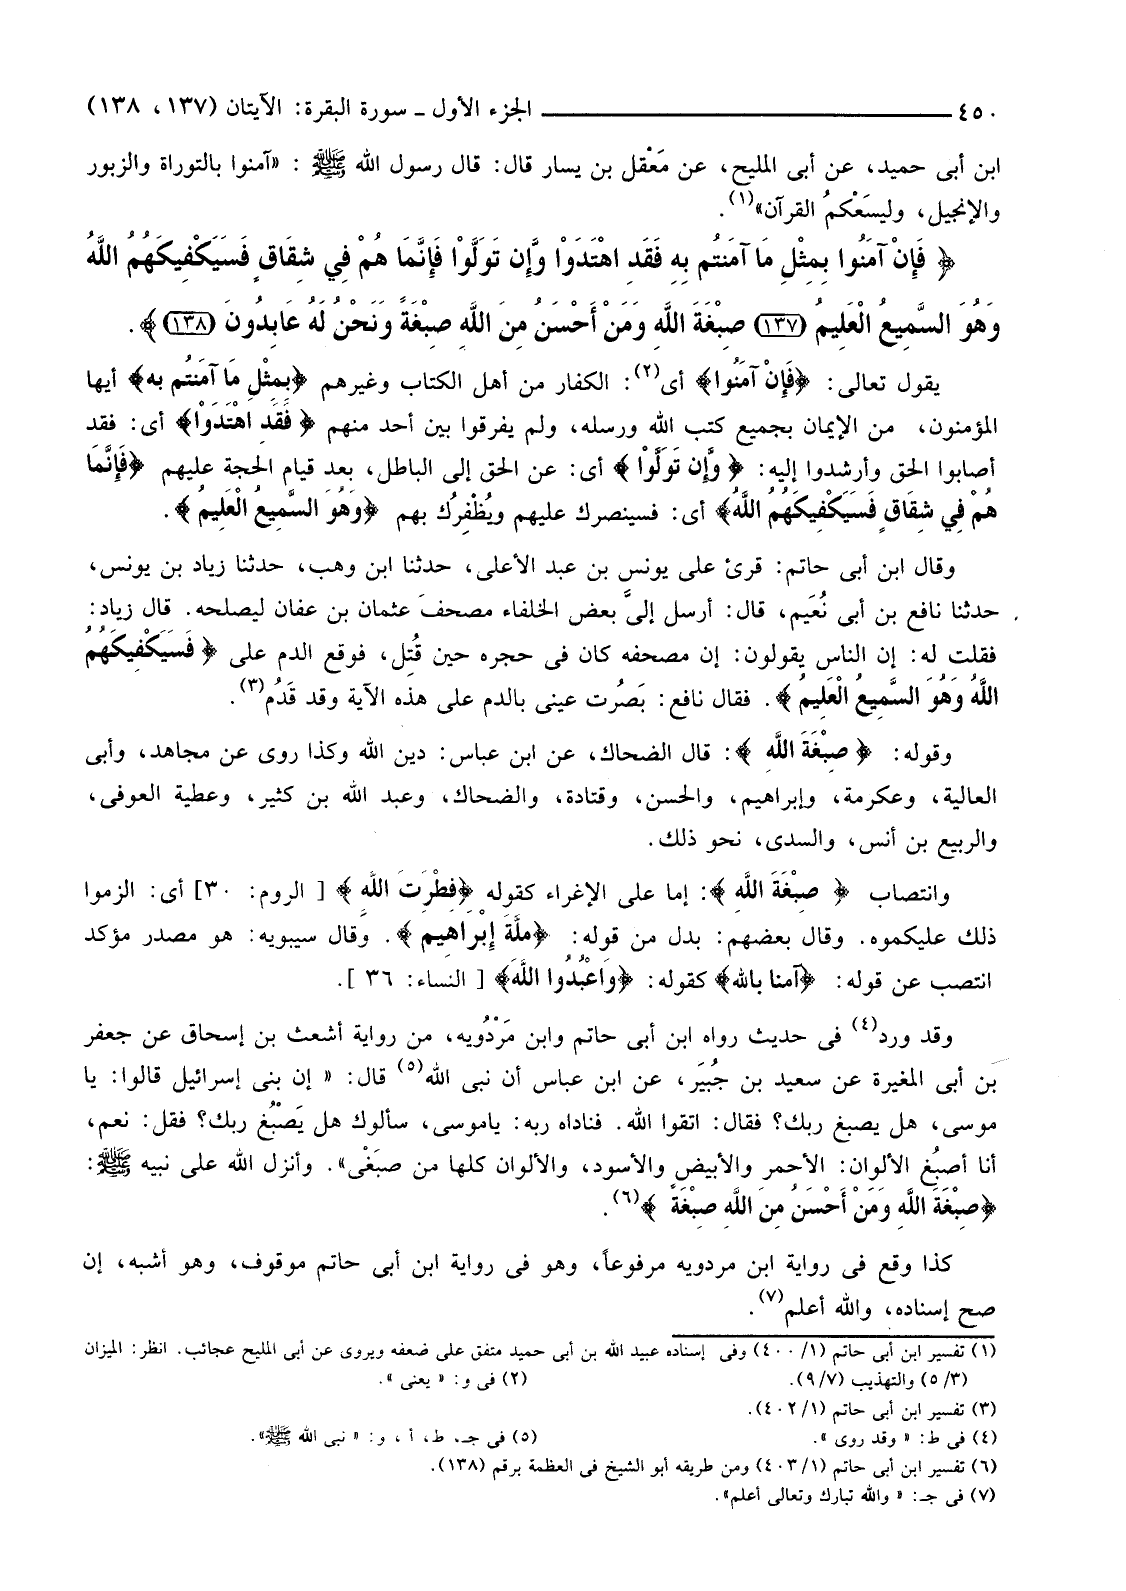 ٤٥٠ ــــــــــــــــ الجزء الأول ـ سورة البقرة: الآيتان (١٣٧، ١٣٨)
ابن أبى حميد، عن أبى المليح، عن مَعْقل بن يسار قال: قال رسول الله ﷺ : «آمنوا بالتوراة والزبور
والإنجيل، وليسَعْكمُ القرآن»(١).
﴿ فَإِنْ آمَنُوا بِمِثْلِ مَا آمَنتُم بِهِ فَقَدِ اهْتَدَوْا وَّإِن تَوَلَّوْا فَإِنَّمَا هُمْ فِي شِقَاقٍ فَسَيَكْفِيكَهُمُ اللَّهُ
وَهُوَ السَّمِيعُ الْعَلِيمُ (١٣٧) صِبْغَةَ اللَّهِ وَمَنْ أَحْسَنُ مِنَ اللَّهِ صِبْغَةً وَنَحْنُ لَهُ عَابِدُونَ (١٣٨) ﴾.
يقول تعالى: ﴿فَإِنْ آمَنُوا﴾ أى(٢): الكفار من أهل الكتاب وغيرهم ﴿بِمِثْلِ مَا آمَنتُم بِهِ﴾ أيها
المؤمنون، من الإيمان بجميع كتب الله ورسله، ولم يفرقوا بين أحد منهم ﴿ فَقَدِ اهْتَدَوْا﴾ أى: فقد
أصابوا الحق وأرشدوا إليه: ﴿ وَّإِن تَوَلَّوْا ﴾ أى: عن الحق إلى الباطل، بعد قيام الحجة عليهم ﴿فَإِنَّمَا
هُمْ فِي شِقَاقٍ فَسَيَكْفِيكَهُمُ اللَّهُ﴾ أى: فسينصرك عليهم ويُظْفِرُك بهم ﴿وَهُوَ السَّمِيعُ الْعَلِيمُ ﴾.
وقال ابن أبى حاتم: قرئ على يونس بن عبد الأعلى، حدثنا ابن وهب، حدثنا زياد بن يونس،
حدثنا نافع بن أبى نُعَيم، قال: أرسل إلىَّ بعض الخلفاء مصحفَ عثمان بن عفان ليصلحه. قال زياد:
فقلت له: إن الناس يقولون: إن مصحفه كان فى حجره حين قُتِل، فوقع الدم على ﴿ فَسَيَكْفِيكَهُمُ
اللَّهُ وَهُوَ السَّمِيعُ الْعَلِيمُ ﴾. فقال نافع: بَصُرت عينى بالدم على هذه الآية وقد قَدُم(٣).
وقوله: ﴿ صِبْغَةَ اللَّهِ ﴾: قال الضحاك، عن ابن عباس: دين الله وكذا روى عن مجاهد، وأبى
العالية، وعكرمة، وإبراهيم، والحسن، وقتادة، والضحاك، وعبد الله بن كثير، وعطية العوفى،
والربيع بن أنس، والسدى، نحو ذلك.
وانتصاب ﴿ صِبْغَةَ اللَّهِ ﴾: إما على الإغراء كقوله ﴿فِطْرَتَ اللَّهِ ﴾ [ الروم: ٣٠] أى: الزموا
ذلك عليكموه. وقال بعضهم: بدل من قوله: ﴿مِلَّةَ إِبْرَاهِيمَ ﴾. وقال سيبويه: هو مصدر مؤكد
انتصب عن قوله: ﴿آمنا بالله﴾ كقوله: ﴿وَاعْبُدُوا اللَّهَ﴾ [ النساء: ٣٦ ].
وقد ورد(٤) فى حديث رواه ابن أبى حاتم وابن مَرْدُويه، من رواية أشعث بن إسحاق عن جعفر
بن أبى المغيرة عن سعيد بن جُبَير، عن ابن عباس أن نبى الله(٥) قال: « إن بنى إسرائيل قالوا: يا
موسى، هل يصبغ ربك؟ فقال: اتقوا الله. فناداه ربه: ياموسى، سألوك هل يَصْبُغ ربك؟ فقل: نعم،
أنا أصبُغ الألوان: الأحمر والأبيض والأسود، والألوان كلها من صبَغْى». وأنزل الله على نبيه ﷺ:
﴿صِبْغَةَ اللَّهِ وَمَنْ أَحْسَنُ مِنَ اللَّهِ صِبْغَةً ﴾(٦).
كذا وقع فى رواية ابن مردويه مرفوعاً، وهو فى رواية ابن أبى حاتم موقوف، وهو أشبه، إن
صح إسناده، والله أعلم(٧).
(١) تفسير ابن أبى حاتم (١/ ٤٠٠) وفى إسناده عبيد الله بن أبى حميد متفق على ضعفه ويروى عن أبى المليح عجائب. انظر: الميزان
(٣/ ٥) والتهذيب (٧/ ٩). (٢) فى و: « يعنى ».
(٣) تفسير ابن أبى حاتم (١/ ٤٠٢).
(٤) فى ط: « وقد روى ». (٥) فى جـ، ط، أ ، و: « نبى الله ﷺ».
(٦) تفسير ابن أبى حاتم (١/ ٤٠٣) ومن طريقه أبو الشيخ فى العظمة برقم (١٣٨).
(٧) فى جـ: « والله تبارك وتعالى أعلم».